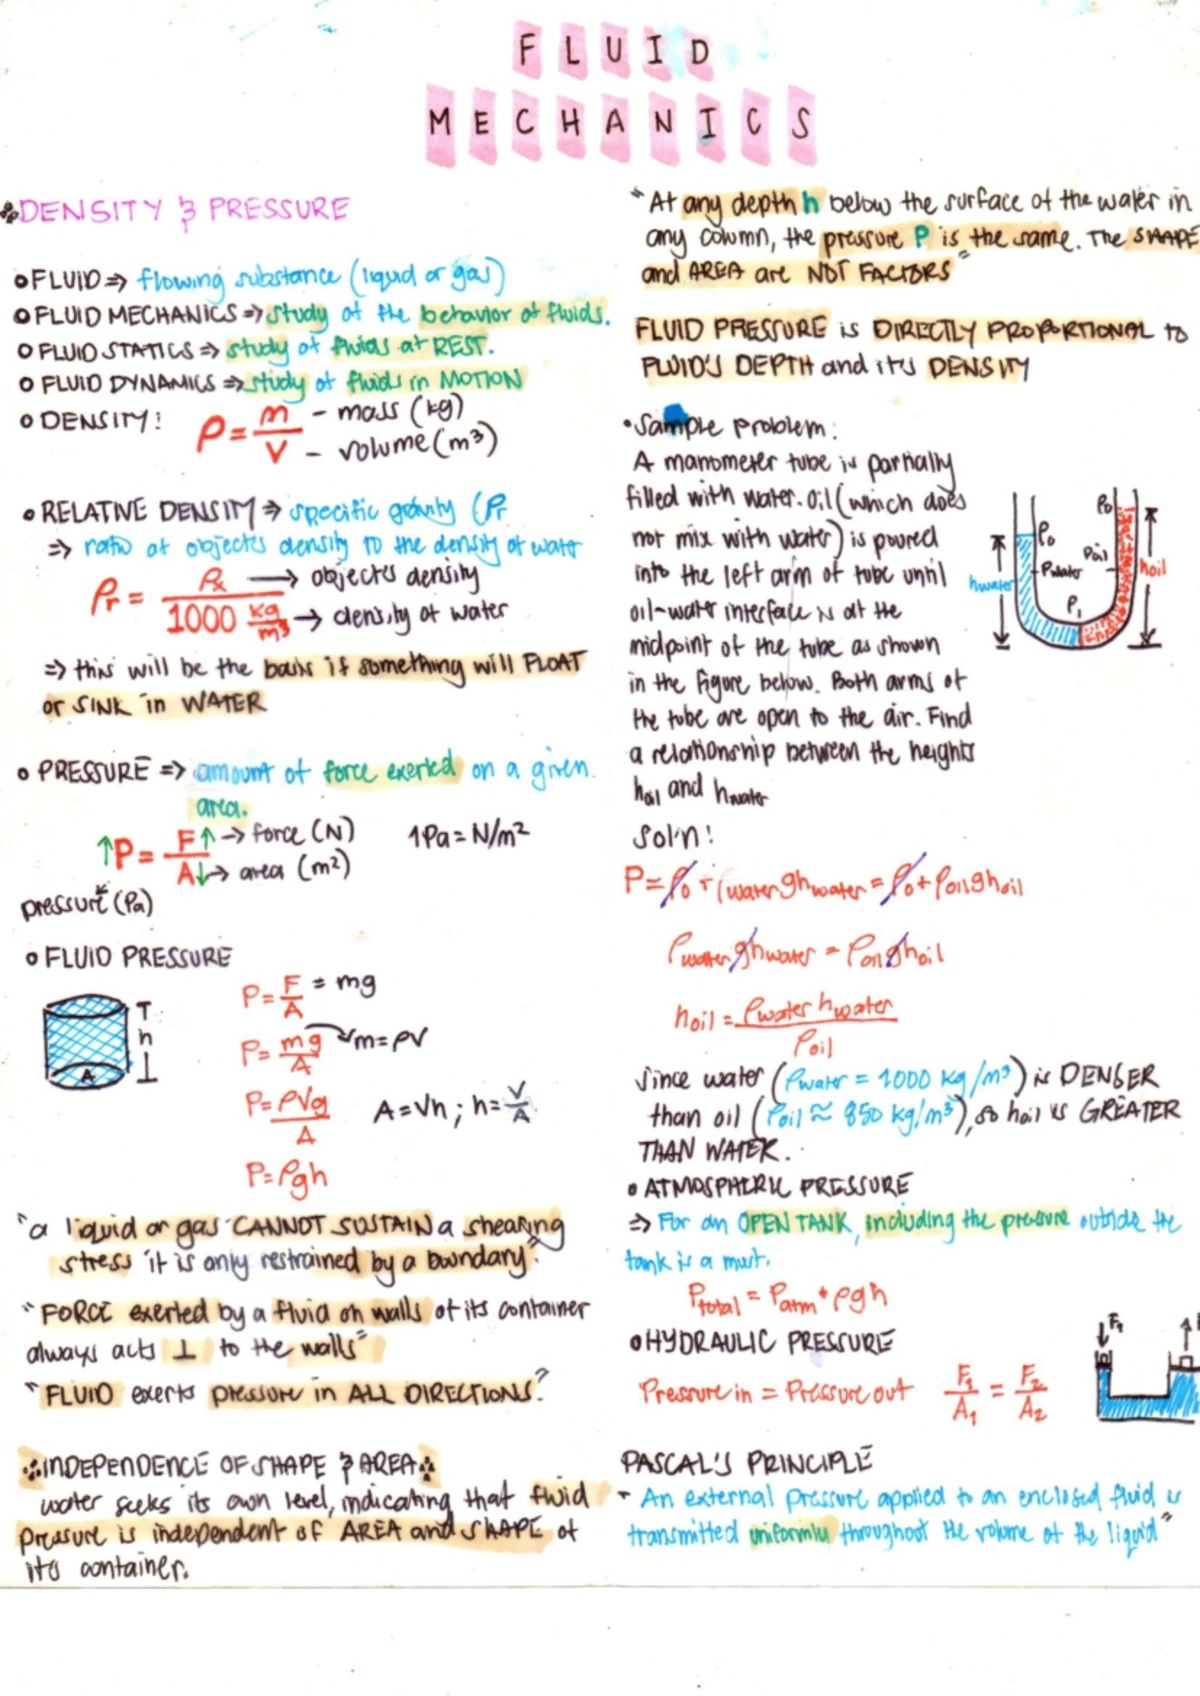 FLUID
MECHANICS
DENSITY & PRESSURE
FLUID ⇒ flowing substance (liquid or gas)
FLUID MECHANICS ⇒ study of the behavior of fluids.
FLUID STATICS ⇒ study of fluids at REST.
FLUID DYNAMICS ⇒ study of fluids in MOTION
DENSITY: ρ = m/V - mass (kg) - volume (m³)
RELATIVE DENSITY ⇒ specific gravity (ρr
⇒ ratio of objects density to the density of water
ρr = ρx/1000 kg/m³ → objects density → density of water
⇒ this will be the basis if something will FLOAT
or SINK in WATER
PRESSURE ⇒ amount of force exerted on a given
area.
↑P = F↑/A↓ → force (N) → area (m²) 1Pa = N/m²
pressure (Pa)
FLUID PRESSURE
T
h
A
P = F/A = mg
P = mg/A m = ρV
P = ρVg/A A = Vh ; h = V/A
P = ρgh
"a liquid or gas CANNOT SUSTAIN a shearing
stress it is only restrained by a boundary"
"FORCE exerted by a fluid on walls of its container
always acts ⊥ to the walls"
"FLUID exerts pressure in ALL DIRECTIONS."
INDEPENDENCE OF SHAPE & AREA
water seeks its own level, indicating that fluid
pressure is independent of AREA and SHAPE of
its container.
"At any depth h below the surface of the water in
any column, the pressure P is the same. The SHAPE
and AREA are NOT FACTORS"
FLUID PRESSURE is DIRECTLY PROPORTIONAL to
FLUID'S DEPTH and its DENSITY
Sample problem:
A manometer tube is partially
filled with water. Oil (which does
not mix with water) is poured
into the left arm of tube until
oil-water interface is at the
midpoint of the tube as shown
in the figure below. Both arms of
the tube are open to the air. Find
a relationship between the heights
hoil and hwater
P₀
P₀
ρwater
ρoil
P₁
hwater
hoil
Sol'n:
P = P₀ + ρwater ghwater = P₀ + ρoil ghoil
ρwater ghwater = ρoil ghoil
hoil = ρwater hwater/ρoil
Since water (ρwater = 1000 kg/m³) is DENSER
than oil (ρoil ≈ 850 kg/m³), so hoil is GREATER
THAN WATER.
ATMOSPHERIC PRESSURE
⇒ For an OPEN TANK, including the pressure outside the
tank is a must.
Ptotal = Patm + ρgh
HYDRAULIC PRESSURE
Pressure in = Pressure out F₁/A₁ = F₂/A₂
F₁
PASCAL'S PRINCIPLE
- An external pressure applied to an enclosed fluid is
transmitted uniformly throughout the volume of the liquid"